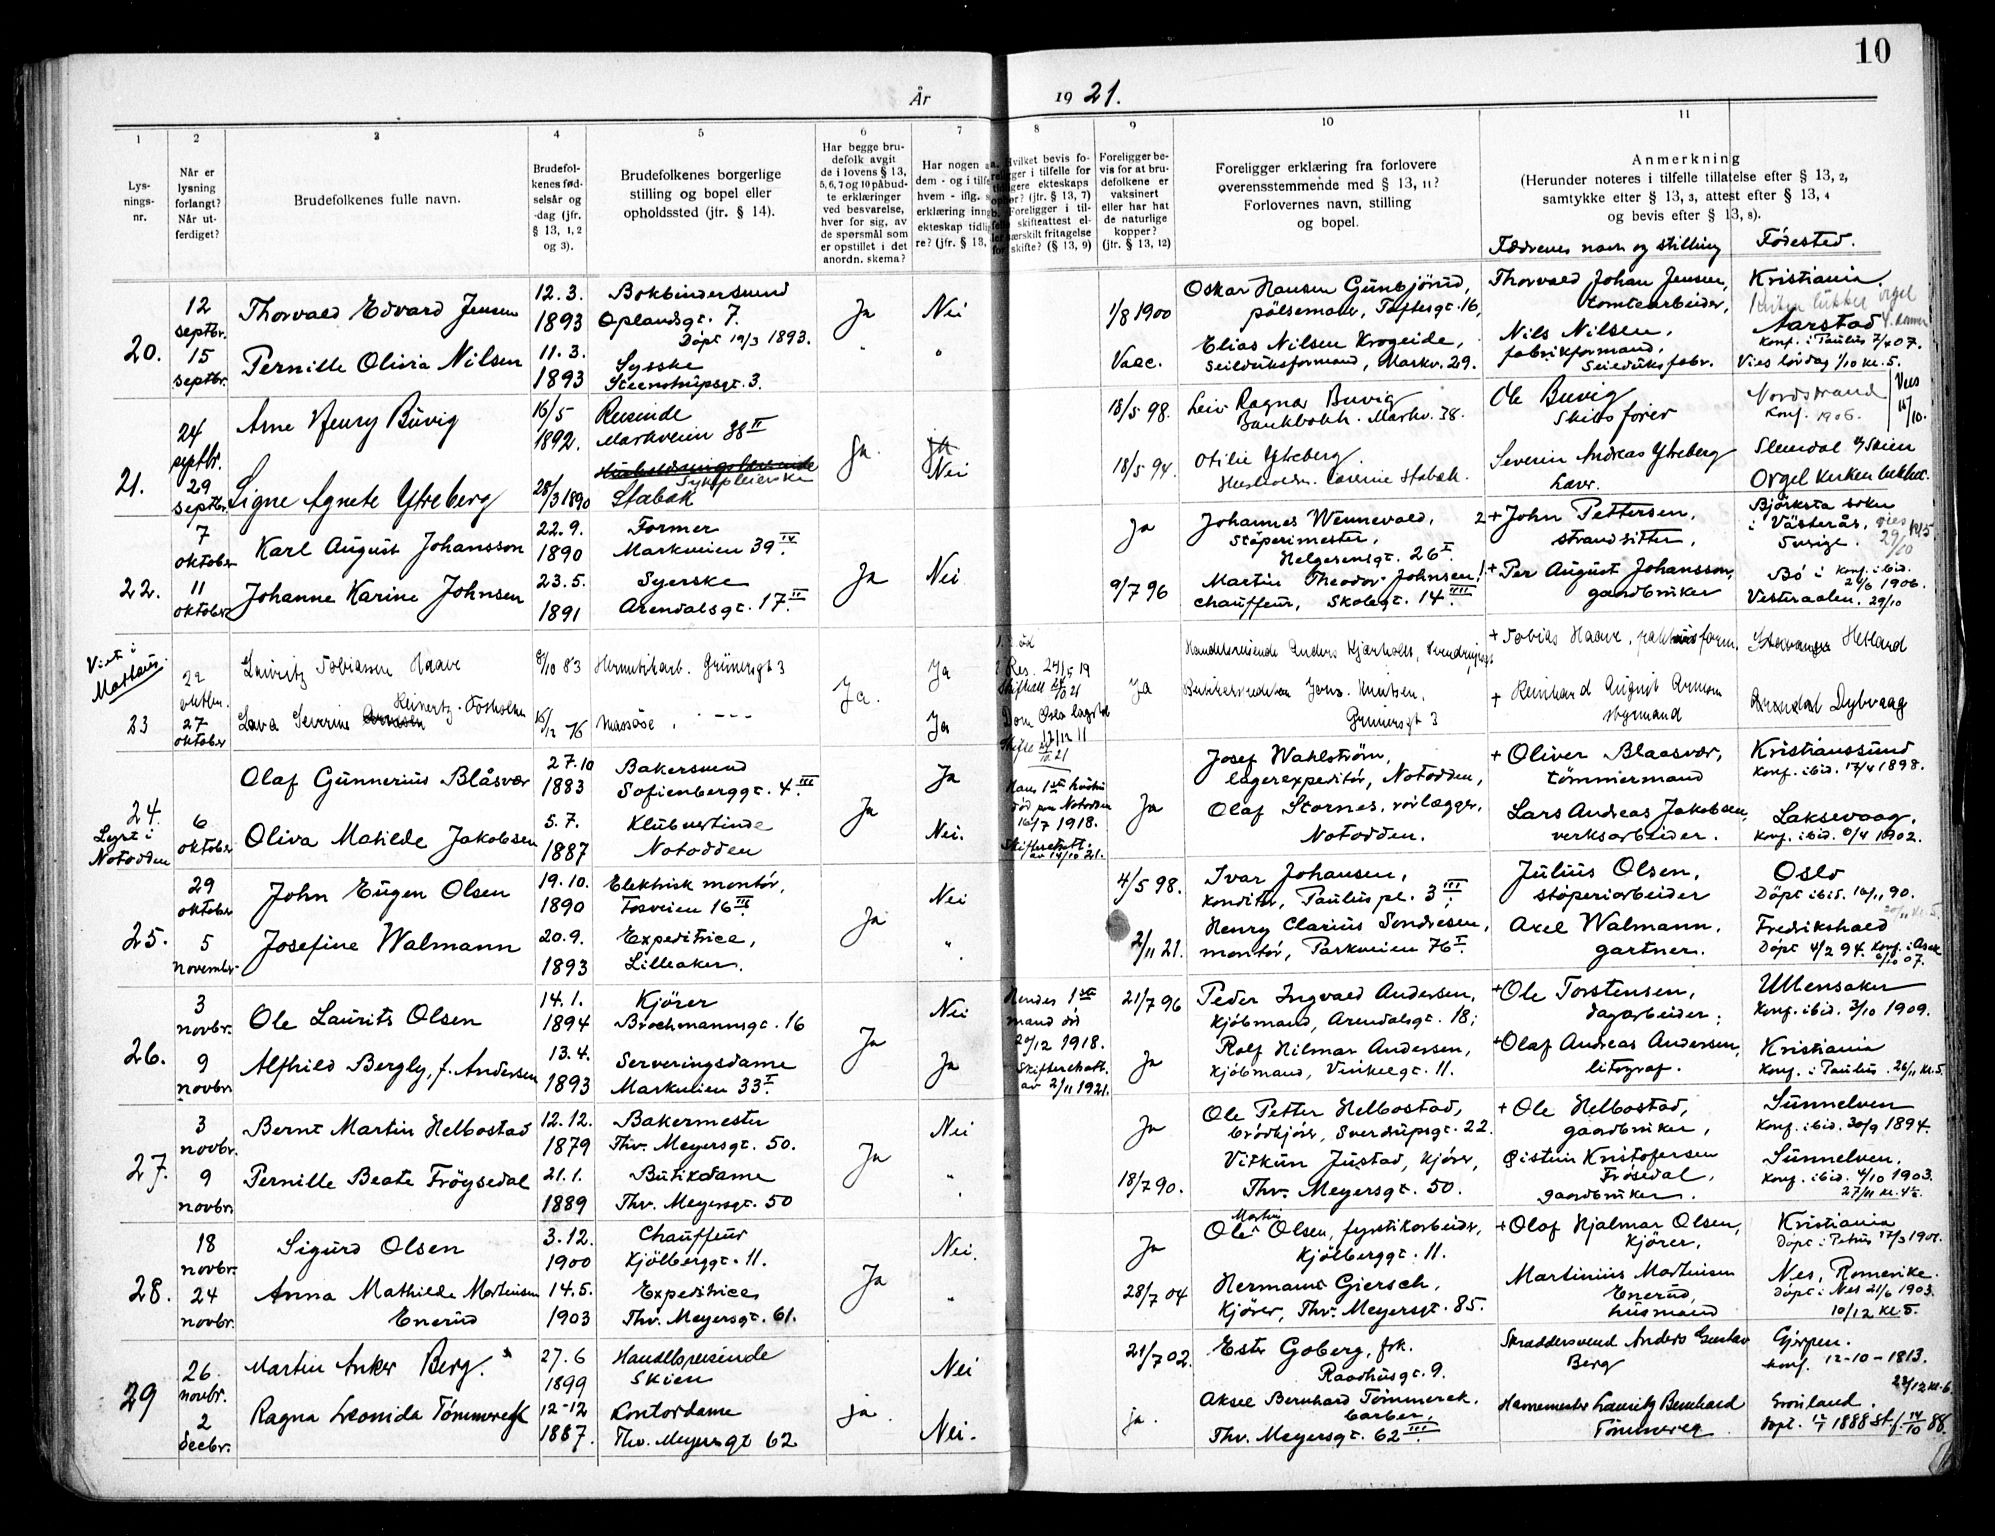 10
År 1921.
1 2 3 4 5 6 7 8 9 10 11
Lys-
nings-
nr.
Når er
lysning
forlangt?
Når ut-
ferdiget?
Brudefolkenes fulle navn.
Brudefol-
kenes fød-
selsår og
-dag (jfr.
§ 13, 1, 2
og 3).
Brudefolkenes borgerlige
stilling og bopel eller
opholdssted (jfr. § 14).
Har begge bru-
defolk avgit
de i lovens § 13,
5, 6, 7 og 10 påbud-
te erklæringer
ved besvarelse,
hver for sig, av
de spørsmål som
er opstillet i det
anordn. skema?
Har nogen
dem - og i tilfe
hvem - iflg.
erklæring inng
ekteskap tidlig
re? (jfr. § 13,
Hvilket bevis fo-
i tilfelle for
ekteskaps
(jfr. § 13, 7)
Foreligger i til-
skifteattest el-
særskilt fritagelse
for skifte? (§ 13, 9)
Foreligger be-
vis for at bru-
defolkene er
vaksinert
eller har hat
de naturlige
kopper?
(jfr. § 13, 12)
Foreligger erklæring fra forlovere
overensstemmende med § 13, 11?
Forlovernes navn, stilling
og bopel.
Anmerkning
(Herunder noteres i tilfelle tillatelse efter § 13, 2,
samtykke efter § 13, 3, attest efter § 13, 4
og bevis efter § 13, 8).
Fædrenes navn og stilling Fødested.
20.
12
septbr.
15
septbr.
Thorvald Edvard Jensen
Pernille Olivia Nilsen
12. 3.
1893
11. 3.
1893
Bokbindersvend
Oplandsgt. 7.
Döpt 19/3 1893.
Syerske
Steenstrupsgt. 3.
Ja
Nei
"
1/8 1900
Vacc.
Oskar Hansen Gunbjörud,
pölsemaker, Toftesgt. 16,
Elias Nilsen Krogeide,
Seildüksformand, Markv. 29.
Thorvald Johan Jensen,
tomtearbeider,
Nils Nilsen,
fabrikformand,
Seildüksfabr.
Kristiania.
Kirken lukket orgel
Aarstad
Konf. i Paulus 7/4 07.
Vies lördag 1/10 kl. 5.
21.
24
septbr.
29
septbr.
Arne Henry Büvig
Signe Agnete Ytreberg
16/5
1892.
28/3 1890
Reisende
Markveien 38 II
Sykepleierske
Stabæk
Ja.
Nei
18/5 98.
18/5 94.
Leiv Ragnar Buvig
Bankbokh. Markv. 38.
Otilie Ytreberg.
Stabæk.
Ole Buvig
Skibsförer
Severin Andreas Ytreberg
Nordstrand
Konf. 1906.
Vies
15/10.
Slemdal p/ Skien
Orgel kirken lukket.
22.
7
oktober
11
oktober
Karl August Johansson
Johanne Karine Johnsen
22. 9.
1890
23. 5.
1891
Former
Markveien 39 IV
Syerske
Arendalsgt. 17 II
Ja
Nei
Ja
9/7 96
Johannes Wennevald,
Stöperimester,
Helgesensgt. 26 I
Martin Theodor Johnsen,
chauffeur, Skolegt. 14 III
2 + John Pettersen,
strandsitter,
1 + Per August Johansson,
gaardbruker
Björksta sokn
i Västerås,
Sverige.
vies
29/10
Bö i Konf. ibid.
24/6 1906.
Vesteraalen. 29/10
Viet i
23
22
oktbr.
27
oktober
Lauritz Tobiassen Haave
Reinertz
Lava Severine Arnesen
9/10 83
15/12 76
Hermetikarb. Grünersgt 3
Massöse, " ---
Ja.
Ja
Ja
Res. 24/5 19
Dom Oslo lagret
12/12 11
Ja
Handelsreisende Anders Kjærholt,
Knutsen.
Grünersgt 3
+ Tobias Haave, pakhusform.
+ Reinhard August Arnesen
styrmand
Stavanger Hetland
Arendal Dybvaag
24.
Lyst i
Notodden
6
oktober
Olaf Gunnerius Blåsvær
Oliva Matilde Jakobsen
27. 10
1883
5. 7.
1887
Bakersvend
Sofienberggt. 4 III
Klubvertinde
Notodden
Ja
Ja
Nei.
Hans 1ste hüstru
död paa Notodden
16/7 1918.
Skifteattest.
av 14/10 21.
Ja
Josef Wahlström,
lagerexpeditör, Notodden,
Olaf Stornes, rörlægger,
Notodden.
+ Oliver Blaasvær,
tömmermand
Lars Andreas Jakobsen,
verksarbeider.
Kristianssund
Konf. ibid. 17/4 1898.
Laksevaag.
Konf. ibid. 6/4 1902.
25.
29
oktober
5
november
John Eugen Olsen
Josefine Walmann
19. 10.
1890
20. 9.
1893
Elektrisk montör,
Fosveien 16 III
Expeditrice,
Lilleaker.
Ja
Nei
"
4/5 98.
2/11 21.
Ivar Johansen,
konditor, Paulus pl. 3 III,
Henry Clarius Sondresen,
montör, Parkveien 76 I
Julius Olsen,
stöperiarbeider
Axel Walmann,
gartner.
Oslo
Döpt ibid. 16/11 90.
20/11 kl. 5.
Fredrikshald
Döpt 4/2 94. Konf. i Asak
6/10 07.
26.
3
novbr.
9
novbr.
Ole Laurits Olsen
Alfhild Bergly, f. Andersen
14. 1.
1894
13. 4.
1893
Kjörer
Brochmannsgt. 16
Serveringsdame
Markveien 33 I
Ja
Nei
Ja
Hendes 1ste
mand död
20/12 1918.
Skifteattest.
av 2/11 1921.
21/7 96
Ja
Peder Ingvald Andersen,
Kjöbmand, Arendalsgt. 18;
Rolf Hilmar Andersen,
Kjöbmand, Vinkelgt. 11.
+ Ole Torstensen,
dagarbeider;
+ Olaf Andreas Andersen,
litograf.
Ullensaker
Konf. ibid. 3/10 1909.
Kristiania
Konf. i Paulus. 26/11 kl. 5.
27.
3
novbr.
9
novbr.
Bernt Martin Helbostad
Pernille Beate Fröysedal
12. 12.
1879
21. 1.
1889
Bakermester
Thv. Meyersgt. 50.
Butikdame
Thv. Meyersgt. 50
Ja
Nei
"
Ja
18/7 90.
Ole Petter Helbostad,
brödkjörer, Sverdrupsgt. 22.
Vitkun Justad, kjörer,
Thv. Meyersgt. 50.
+ Ole Helbostad,
gaardbruker,
Øistein Kristofersen
Frösedal,
gaardbruker.
Sunnelven
Konf. ibid. 30/9 1894.
Sunnelven.
Konf. ibid. 4/10 1903.
27/11 kl. 4½.
28.
18
novbr.
24
novbr.
Sigurd Olsen
Anna Mathilde Martinsen
Enerud
3. 12.
1900
14. 5.
1903
Chauffeur
Kjölberggt. 11.
Expeditrice
Thv. Meyersgt. 61.
Ja
Nei.
"
Ja
28/7 04
Martin
Ole Olsen, fyrstikarbeider,
Kjölberggt. 11.
Herman Giersch,
Kjörer, Thv. Meyersgt. 85.
+ Olaf Hjalmar Olsen,
Kjörer,
Martinius Martinsen
Enerud,
husmand
Kristiania
Döpt i Petrus 17/3 1901.
Nes, Romerike.
Döpt i Nes 21/6 1903.
10/12 kl. 5.
29
26
novbr.
2
decbr.
Martin Anker Berg.
Ragna Leonida Tömmereek
27. 6
1899
12-12
1887.
Handelsreisende
Skien
Kontordame
Thv. Meyersgt 62
ja.
Nei
Nei.
21/7 02.
ja.
Ester Goberg, frk.
Raadhusgt. 9.
Aksel Bernhard Tömmereek.
barber,
Thv. Meyersgt. 62 III
Skræddersvend Anders Gustav
Berg
Lauritz Bernhard
Tömmereg
Gjerpen.
Konf. 12-10-1813.
22/12 kl. 6
Grönland.
Döpt.